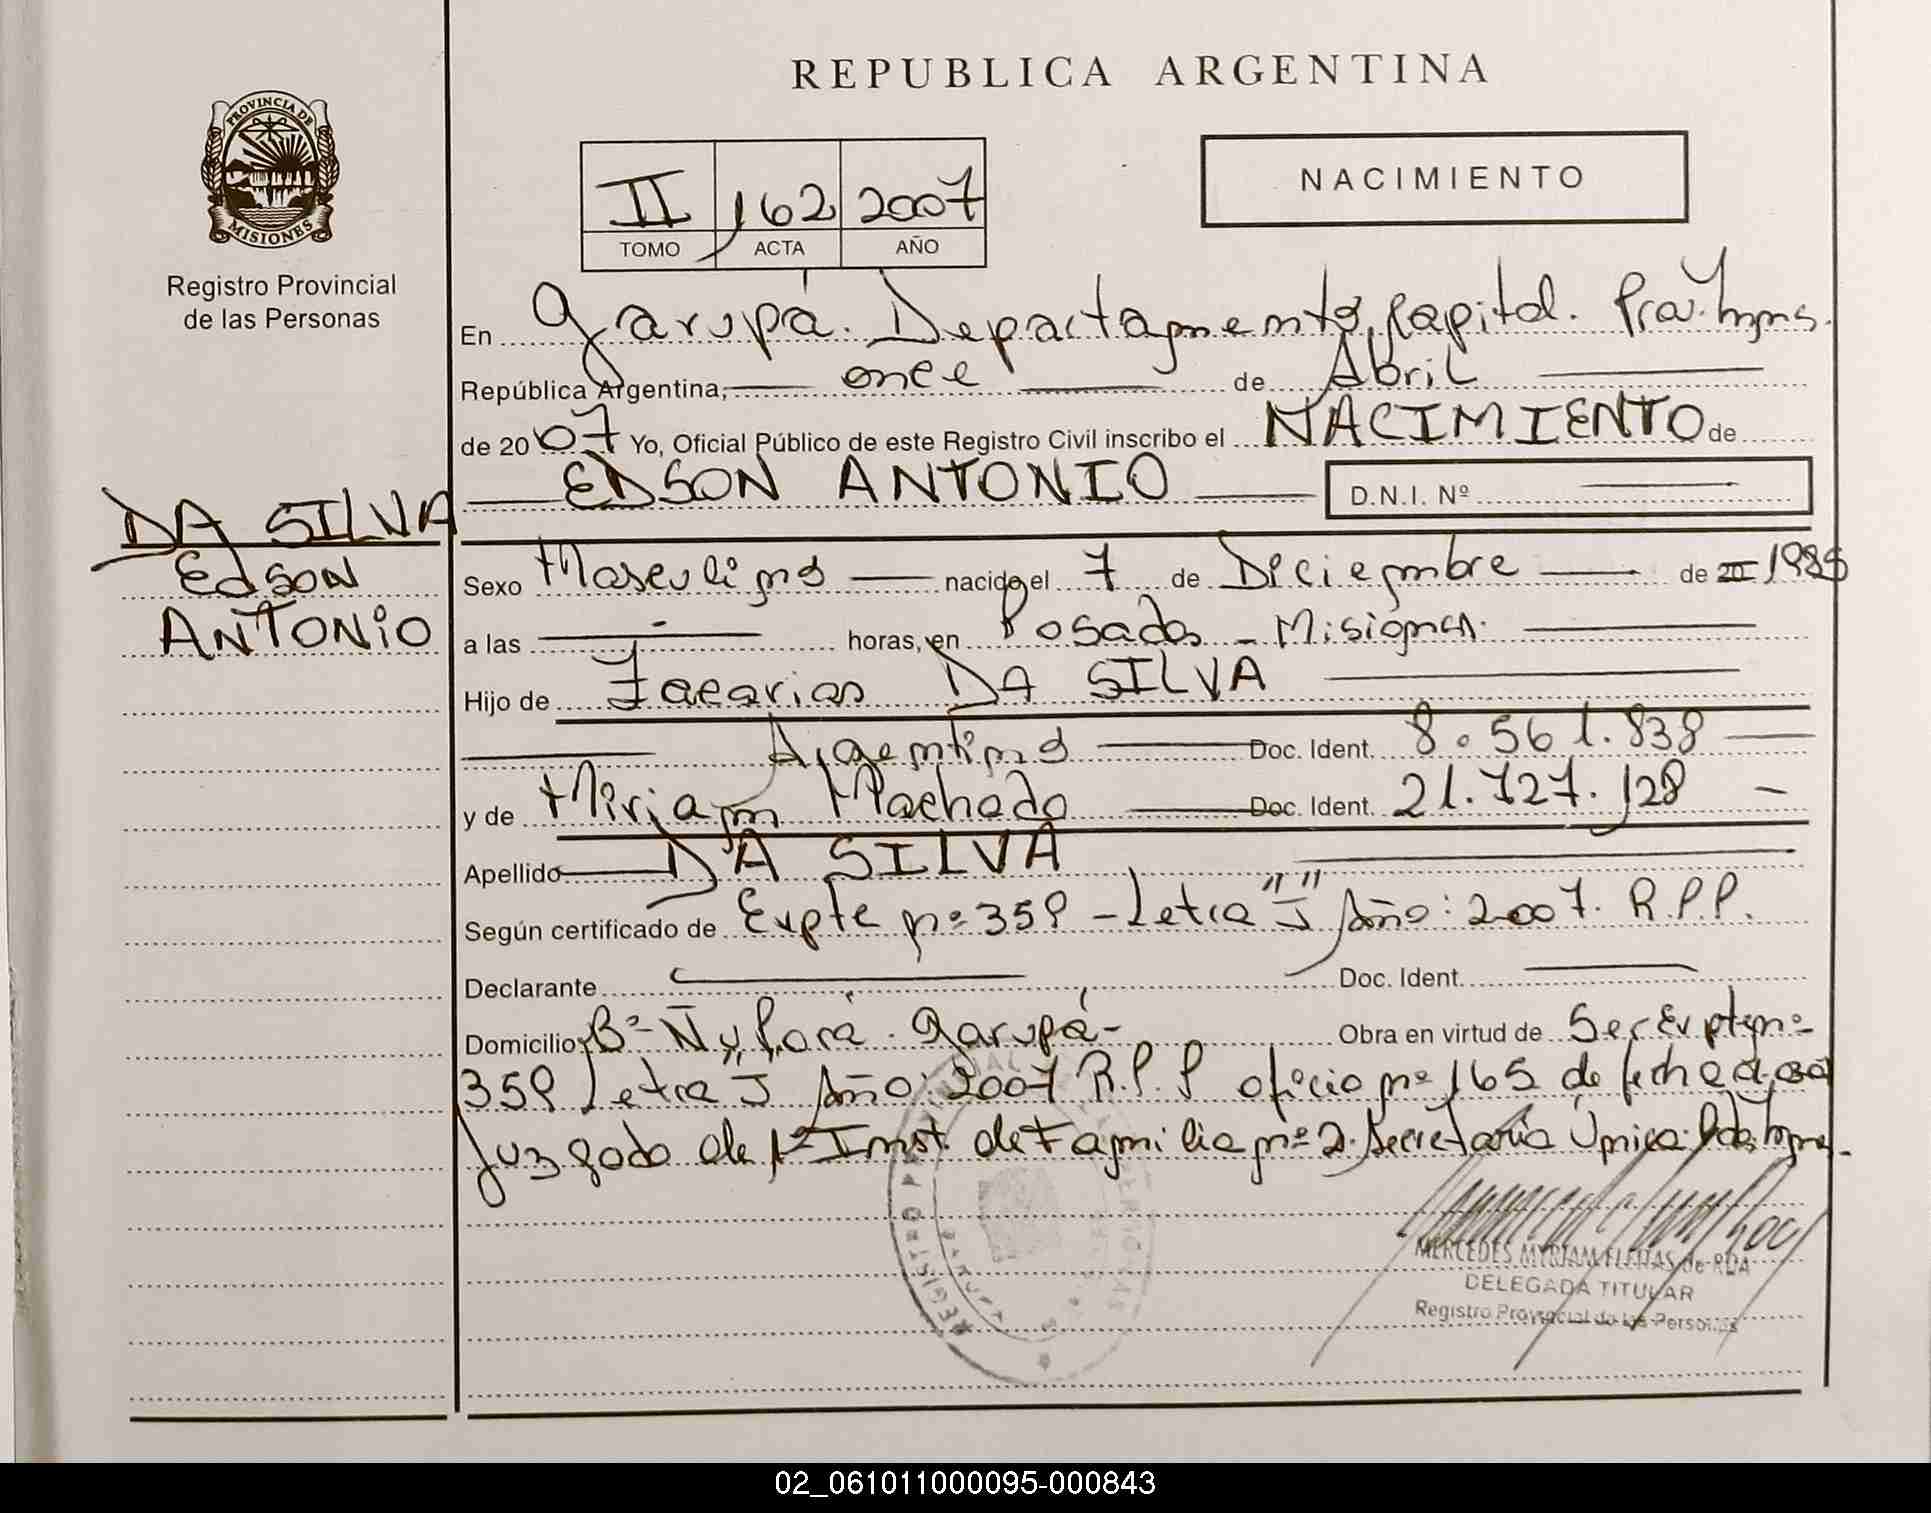 REPUBLICA ARGENTINA
PROVINCIA DE
MISIONES
Registro Provincial
de las Personas
NACIMIENTO
II 162 2007
TOMO ACTA AÑO
En Garupá. Departamento Capital. Prov. Mnes.
República Argentina, once de Abril
de 2007 Yo, Oficial Público de este Registro Civil inscribo el NACIMIENTO de
EDSON ANTONIO D.N.I. Nº
DA SILVA
Edson
ANTONIO
Sexo Masculino nacido el 7 de Diciembre de
a las - horas, en Posadas - Misiones.
Hijo de Zacarias DA SILVA
Argentino Doc. Ident. 8.561.838
y de Miriam Machado Doc. Ident. 21.727.128
Apellido DA SILVA
Según certificado de Expte nº 359 - Letra "J" Año: 2007. R.P.P.
Declarante Doc. Ident.
Domicilio Bº Ñu Porá. Garupá- Obra en virtud de Ser Expte nº
359 Letra "J" Año: 2007 R.P.P oficio nº 165 de fecha
Juzgado de 1º Inst. de Familia nº 2. Secretaría Única. Pdas. Mnes.
MERCEDES MYRIAM FLEITAS de ROA
DELEGADA TITULAR
Registro Provincial de las Personas
02_061011000095-000843